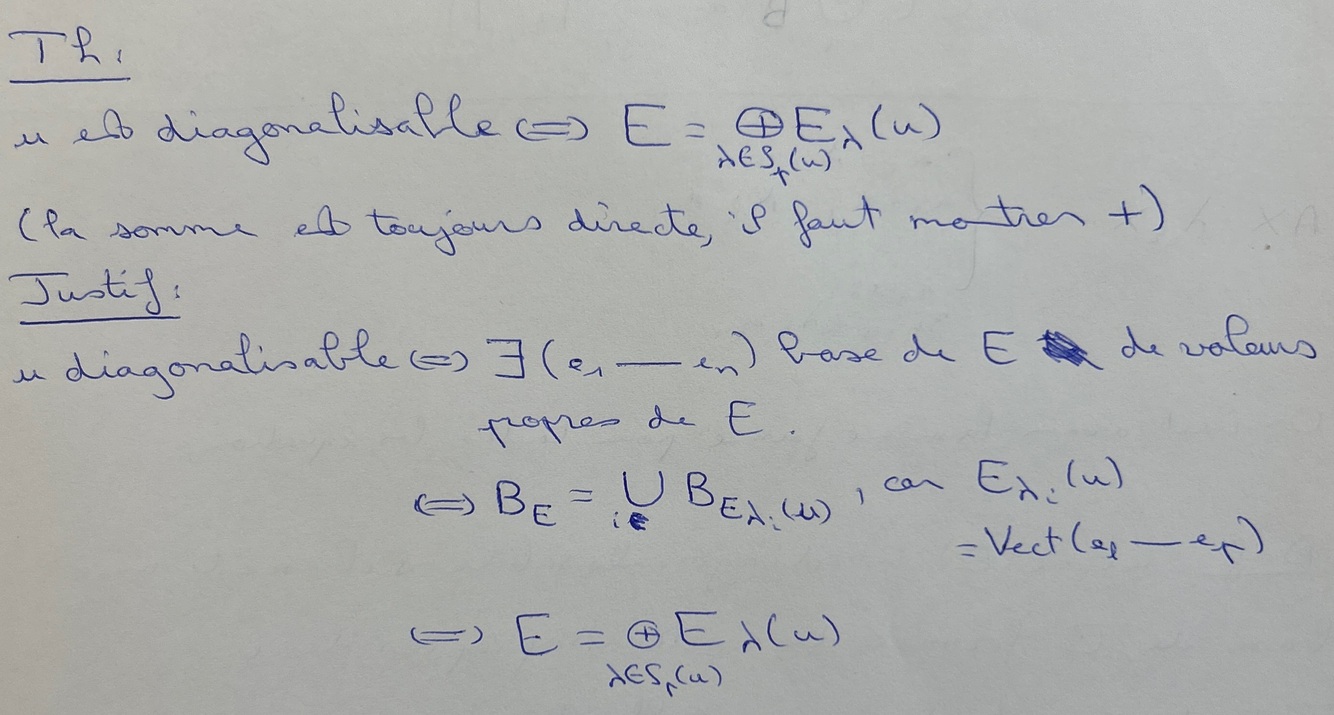 Th:
u est diagonalisable ⟺ E = ⊕ E_λ(u)
λ∈Sp(u)
(la somme est toujours directe, il faut montrer +)
Justif:
u diagonalisable ⟺ ∃(e₁ — eₙ) base de E de valeurs
propres de E.
⟺ B_E = ∪_i B_{E_{λ_i}(u)}, car E_{λ_i}(u)
= Vect(e_l — e_p)
⟺ E = ⊕ E_λ(u)
λ∈Sp(u)